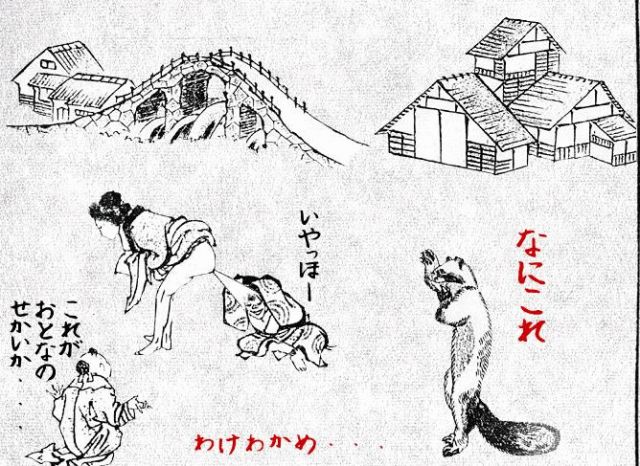 なにこれ
いやっほー
これが
おとなの
せかいか...
わけわかめ...